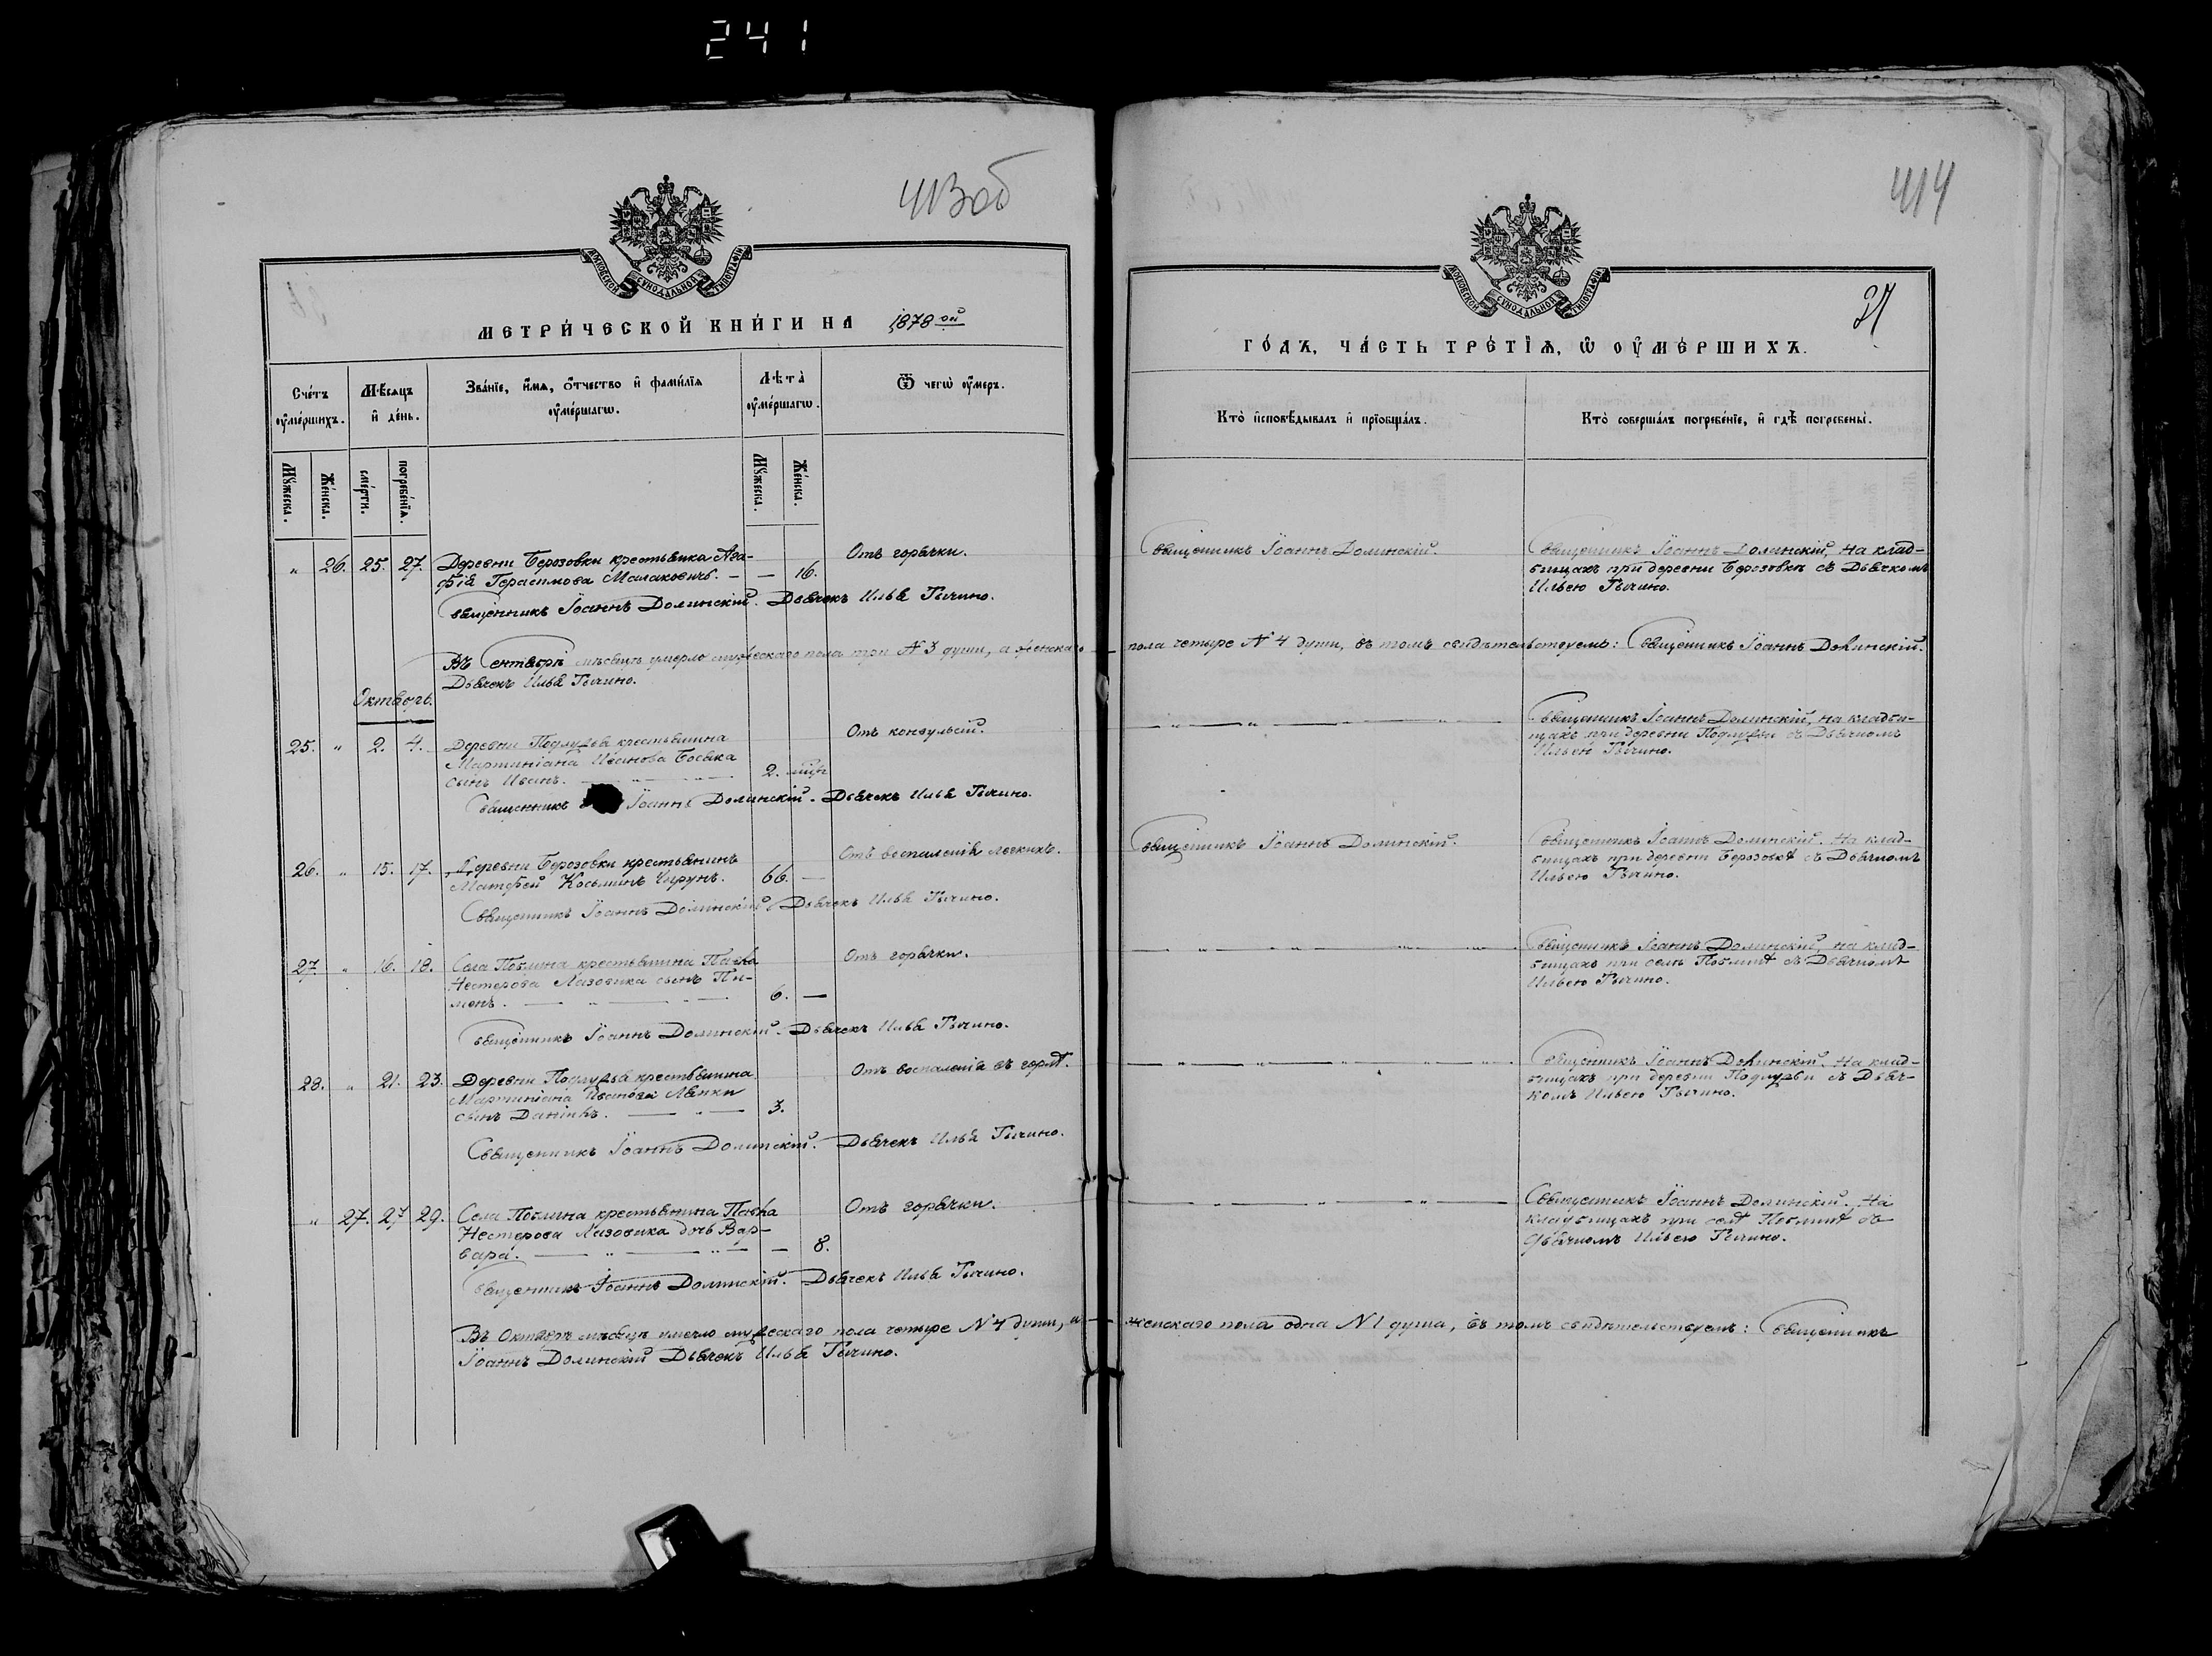 241
413 об
МОСКОВСКОЙ СѴНОДАЛЬНОЙ ТИПОГРАФІИ
МЕТРИ́ЧЕСКОЙ КНИ́ГИ НА 1878 ой
Сче́тъ оу҆ме́ршихъ.
Мѣ́сяцъ и҆ де́нь.
Зва́нїе, и҆́мѧ, ѻ҆́тчество и҆ фами́лїѧ оу҆ме́ршагѡ.
Лѣта̀ оу҆ме́ршагѡ.
Ѿ чегѡ̀ оу҆́меръ.
Мꙋ́жеска.
Же́нска.
сме́рти.
погребе́нїѧ.
Мꙋ́жеска.
Же́нска.
„ 26. 25. 27. Деревни Березовки крестьянка Ага-
фія Герасимова Малаховичъ. — — 16. Отъ горячки.
Священникъ Іоаннъ Долинскій. Дьячекъ Илья Гычино.
Въ Сентябрѣ мѣсяцѣ умерло мужескаго пола три № 3 души, а женскаго
Дьячекъ Илья Гычино.
Октябрь.
25. „ 2. 4. Деревни Подлужья крестьянина
Мартиніана Иванова Босяка
сынъ Иванъ. — „ — 2. мѣс. Отъ конвульсій.
Священникъ Іоаннъ Долинскій. Дьячекъ Илья Гычино.
26. „ 15. 17. Деревни Березовки крестьянинъ
Матфей Косьминъ Чурунъ. 66. — Отъ воспаленія легкихъ.
Священникъ Іоаннъ Долинскій. Дьячекъ Илья Гычино.
27. „ 16. 18. Села крестьянина Павла
Нестерова Лазовика сынъ Пи-
менъ. — „ — 6. — Отъ горячки.
Священникъ Іоаннъ Долинскій. Дьячекъ Илья Гычино.
28. „ 21. 23. Деревни Подлужья крестьянина
Мартиніана Иванова
сынъ Даніилъ. — „ — 3. Отъ воспаленія въ горлѣ.
Священникъ Іоаннъ Долинскій. Дьячекъ Илья Гычино.
„ 27. 27. 29. Села крестьянина Павла
Нестерова Лазовика дочь Вар-
вара. — „ — „ — — 8. Отъ горячки.
Священникъ Іоаннъ Долинскій. Дьячекъ Илья Гычино.
Въ Октябрѣ мѣсяцѣ умерло мужескаго пола четыре № 4 души, а
Іоаннъ Долинскій Дьячекъ Илья Гычино.
414
МОСКОВСКОЙ СѴНОДАЛЬНОЙ ТИПОГРАФІИ
ГО́ДЪ, ЧА́СТЬ ТРЕ́ТЇѦ, Ѡ҆ ОУ҆МЕ́РШИХЪ.
Кто̀ и҆сповѣ́дывалъ и҆ прїобща́лъ.
Кто̀ соверша́лъ погребе́нїе, и҆ гдѣ̀ погребены̀.
Священникъ Іоаннъ Долинскій.
Священникъ Іоаннъ Долинскій, на клад-
бищахъ при деревни Березовки съ Дьячкомъ
Ильею Гычино.
пола четыре № 4 души, въ томъ свидѣтельствуемъ: Священникъ Іоаннъ Долинскій.
Священникъ Іоаннъ Долинскій, на кладби-
щахъ при деревни Подлужьи съ Дьячкомъ
Ильею Гычино.
Священникъ Іоаннъ Долинскій.
Священникъ Іоаннъ Долинскій. На клад-
бищахъ при деревни Березовкѣ съ Дьячкомъ
Ильею Гычино.
Священникъ Іоаннъ Долинскій, на клад-
бищахъ при селѣ съ Дьячкомъ
Ильею Гычино.
Священникъ Іоаннъ Долинскій. На клад-
бищахъ при деревни Подлужьи съ Дьяч-
комъ Ильею Гычино.
Священникъ Іоаннъ Долинскій. На
кладбищахъ при селѣ съ
Дьячкомъ Ильею Гычино.
женскаго пола одна № 1 душа, въ томъ свидѣтельствуемъ: Священникъ